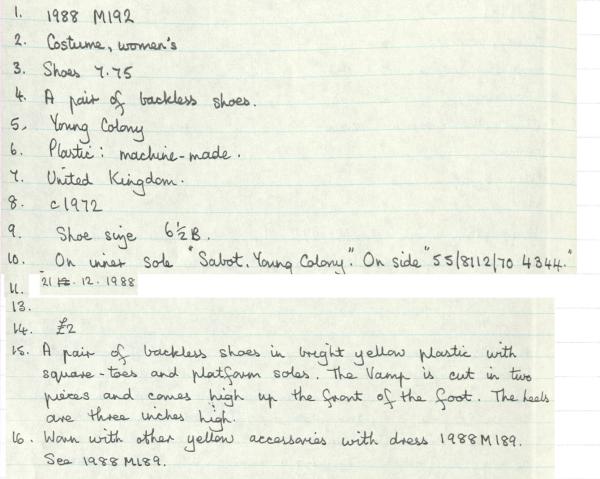 1. 1988 M192
2. Costume, women's
3. Shoes 7.75
4. A pair of backless shoes.
5. Young Colony
6. Plastic: machine-made.
7. United Kingdom.
8. c1972
9. Shoe size 6½B.
10. On inner sole "Sabot. Young Colony". On side "55/8112/70 4344."
11. 21 12. 1988
13.
14. £2
15. A pair of backless shoes in bright yellow plastic with
square-toes and platform soles. The vamp is cut in two
pieces and comes high up the front of the foot. The heels
are three inches high.
16. Worn with other yellow accessories with dress 1988M189.
See 1988M189.